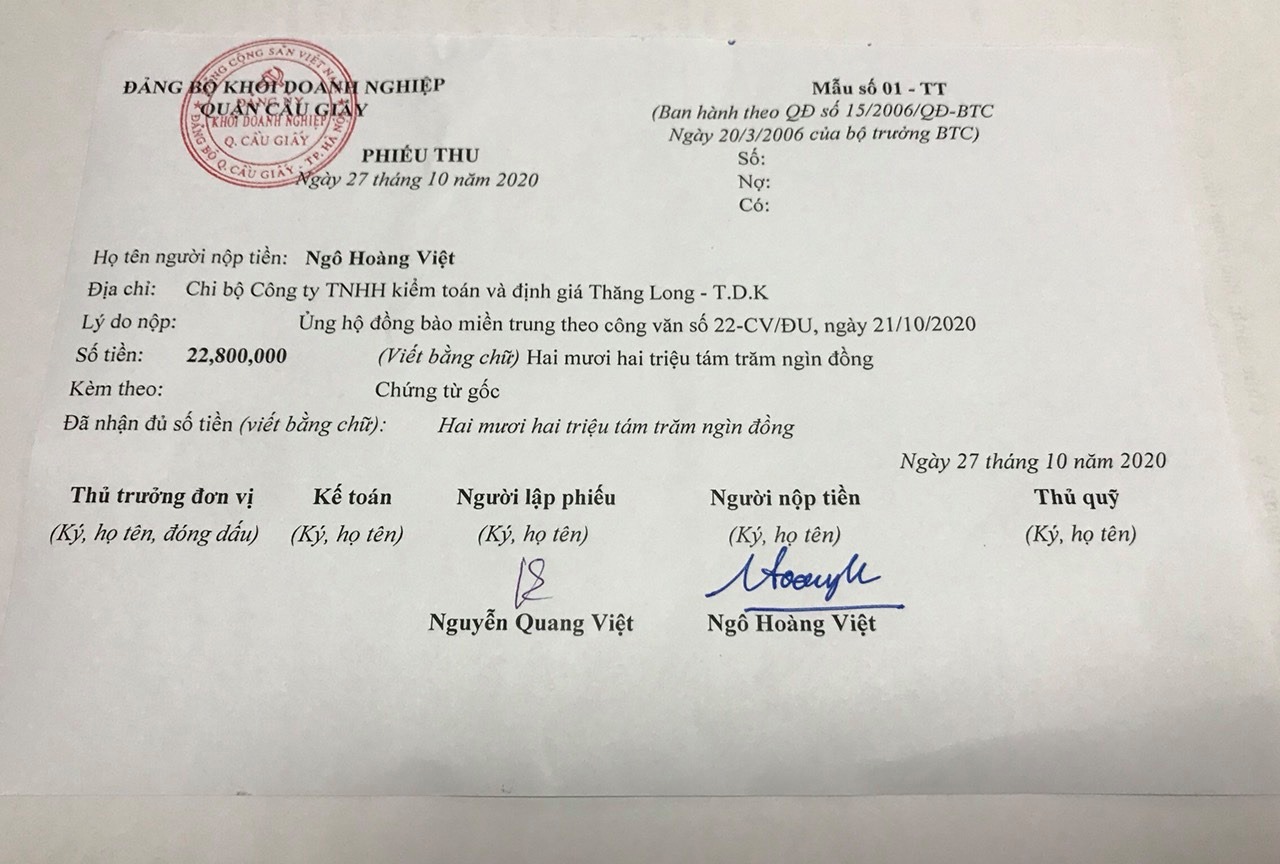 ĐẢNG BỘ KHỐI DOANH NGHIỆP
QUẬN CẦU GIẤY
ĐẢNG CỘNG SẢN VIỆT NAM
ĐẢNG ỦY
KHỐI DOANH NGHIỆP
Q. CẦU GIẤY
ĐẢNG BỘ Q. CẦU GIẤY - TP. HÀ NỘI
Mẫu số 01 - TT
(Ban hành theo QĐ số 15/2006/QĐ-BTC
Ngày 20/3/2006 của bộ trưởng BTC)
PHIẾU THU
Ngày 27 tháng 10 năm 2020
Số:
Nợ:
Có:
Họ tên người nộp tiền: Ngô Hoàng Việt
Địa chỉ: Chi bộ Công ty TNHH kiểm toán và định giá Thăng Long - T.D.K
Lý do nộp: Ủng hộ đồng bào miền trung theo công văn số 22-CV/ĐU, ngày 21/10/2020
Số tiền: 22,800,000 (Viết bằng chữ) Hai mươi hai triệu tám trăm ngìn đồng
Kèm theo: Chứng từ gốc
Đã nhận đủ số tiền (viết bằng chữ): Hai mươi hai triệu tám trăm ngìn đồng
Ngày 27 tháng 10 năm 2020
Thủ trưởng đơn vị Kế toán Người lập phiếu Người nộp tiền Thủ quỹ
(Ký, họ tên, đóng dấu) (Ký, họ tên) (Ký, họ tên) (Ký, họ tên) (Ký, họ tên)
Nguyễn Quang Việt Ngô Hoàng Việt